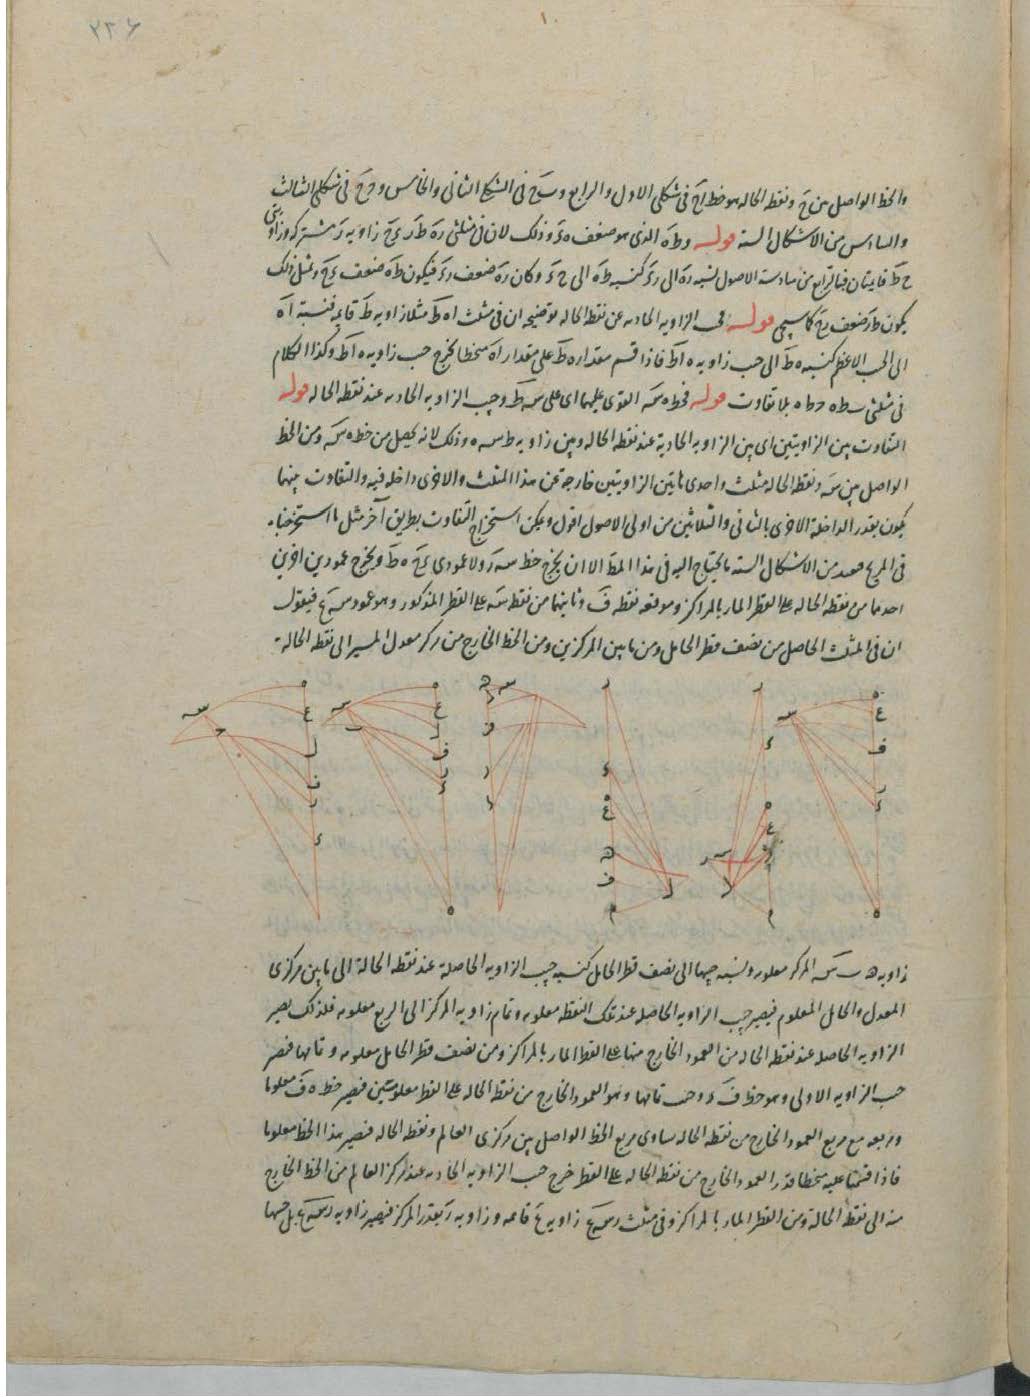 ٢٣٤
١٠
والخط الواصل بين ح ونقطه الحاله هو خط اح فى شكلى الاول والرابع و ب ح فى الشكل الثانى والخامس و ح ح فى شكلى الثالث
والسادس من الاشكال الستة قوله و ط ه الذى هو ضعف ه ء وذلك لان فى مثلثى ر ه ط ر ى ح زاويه ر مشتركه وزاويتى
ح ط قايمتان فبالرابع من سادسة الاصول نسبه ر ه الى ر ى كنسبه ط ه الى ح ى وكان ر ه ضعف ر ى فيكون ط ه ضعف ى ح وبمثل ذلك
يكون ط ر ضعف ر ح كما سيجى قوله فى الزاويه الحادثه عن نقطه الحاله توضيحه ان فى مثلث ا ه ط مثلا زاويه ط قايمه فنسبة ا ه
الى الجيب الاعظم كنسبه ه ط الى جيب زاويه ه ا ط فاذا قسم مقدار ه ط على مقدار ا ه منحطا يخرج جيب زاويه ه ا ط وكذا الكلام
فى مثلثى ب ط ه ح ط ه بلا تفاوت قوله فخط ه سه القوى عليهما اى على سه ط وجيب الزاويه الحادثه عند نقطه الحاله قوله
التفاوت بين الزاويتين اى بين الزاويه الحادثة عند نقطه الحاله وبين زاويه ط سه ه وذلك لانه يحصل من خط ه سه ومن الخط
الواصل بين سه ونقطه الحاله مثلث واحدى هاتين الزاويتين خارجه عن هذا المثلث والاخرى داخله فيه والتفاوت بينهما
يكون بقدر الداخلة الاخرى بالثانى والثلاثين من اولى الاصول اقول ويمكن استخراج التفاوت بطريق آخر مثل ما استخرجناه
فى المريخ من الاشكال الستة ما يحتاج اليه فى هذا المط الا ان يخرج خط سه ر ولا عمودى ى ح ه ط ويخرج عمودين اخرين
احدهما من نقطه الحاله على القطر المار بالمراكز وموقعه نقطه ف وثانيهما من نقطه سه على القطر المذكور وهو عمود سه ع فيقول
ان فى المثلث الحاصل من نصف قطر الحامل ومن ما بين المركزين ومن الخط الخارج من مركز معدل المسير الى نقطه الحالة
زاويه سه المركز معلومه ونسبه جيبها الى نصف قطر الحامل كنسبه جيب الزاويه الحاصلة عند نقطه الحالة الى ما بين مركزى
المعدل والحامل المعلوم فيصير جيب الزاويه الحاصله عند تلك النقطه معلومه وتمام زاويه المركز الى الربع معلومه فلذلك يصير
الزاويه الحاصله عند نقطه الحاله من العمود الخارج منها على القطر المار بالمراكز ومن نصف قطر الحامل معلومه وتمامها فيصير
جيب الزاويه الاولى وهو خط ف ء وجيب تمامها وهو العمود الخارج من نقطه الحاله على القطر معلومتين فيصير خط ه ف معلوما
ومربعه مع مربع العمود الخارج من نقطه الحاله يساوى مربع الخط الواصل بين مركزى العالم ونقطه الحاله فيصير هذا الخط معلوما
فاذا قسمنا عليه منحطا قدر العمود الخارج من نقطه الحاله على القطر خرج جيب الزاويه الحادثه عند مركز العالم من الخط الخارج
منه الى نقطه الحالة ومن القطر المار بالمراكز وفى مثلث ر سه ع زاويه ع قائمه وزاويه ر بقدر المركز فيصير زاويه ر سه ع بل جيبها